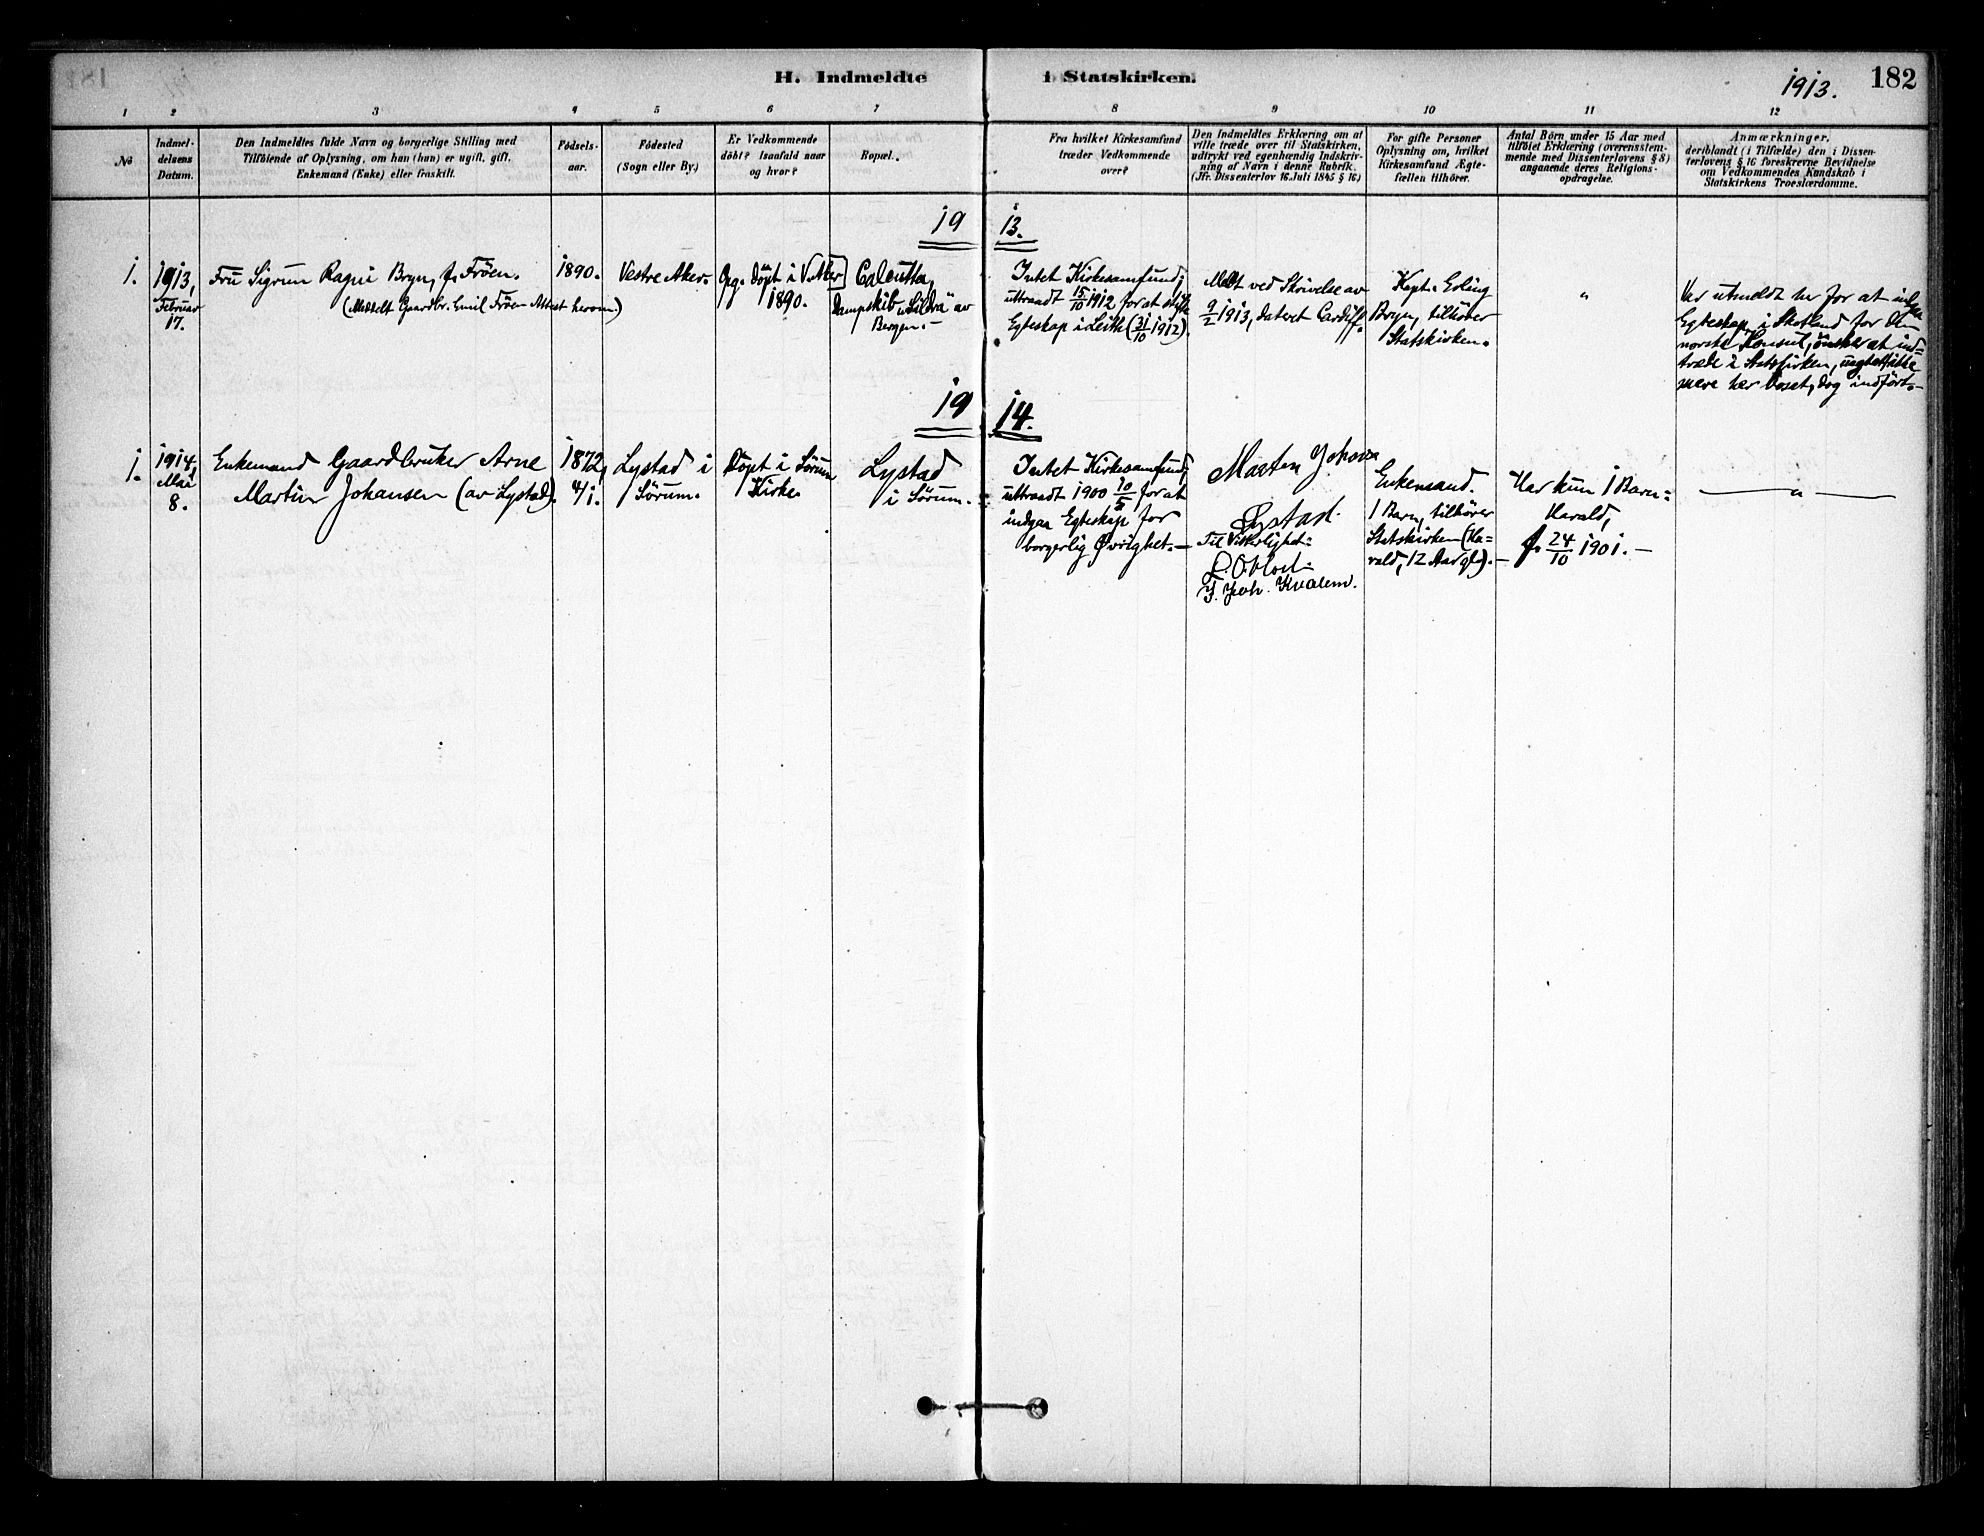 H. Indmeldte i Statskirken.
1913. 182
1 2 3 4 5 6 7 8 9 10 11 12
No
Indmel-
delsens
Datum.
Den Indmeldtes fulde Navn og borgerlige Stilling med
Tilføiende af Oplysning, om han (hun) er ugift, gift,
Enkemand (Enke) eller fraskilt.
Fødsels-
aar.
Fødested
(Sogn eller By.)
Er Vedkommende
döbt? Isaafald naar
og hvor?
Bopæl.
Fra hvilket Kirkesamfund
træder Vedkommende
over?
Den Indmeldtes Erklæring om at
ville træde over til Statskirken,
udtrykt ved egenhændig Indskriv-
ning af Navn i denne Rubrik.
(Jfr. Dissenterlov 16. Juli 1845 § 16)
For gifte Personer
Oplysning om, hvilket
Kirkesamfund Ægte-
fællen tilhører.
Antal Børn under 15 Aar med
tilføiet Erklæring (overensstem-
mende med Dissenterlovens § 8)
angaaende deres Religions-
opdragelse.
Anmærkninger,
deriblandt (i Tilfælde) den i Dissen-
terlovens § 16 foreskrevne Bevidnelse
om Vedkommendes Kundskab i
Statskirkens Troeslærdomme.
19 13.
1.
1913,
Februar
17.
Fru Sigrun Ragni Bryn, f. Fröen.
(Meddelt Gaardbr. Emil Fröen Attest herom.)
1890.
Vestre Aker.
Opg. döpt i V. Aker
1890.
Calcutta,
Dampskib „Sildra" av
Bergen.
Intet Kirkesamfund;
uttraadt 15/10 1912 for at stifte
Egteskap i Leith (31/10 1912).
Meldt ved Skrivelse av
9/2 1913, dateret Cardiff.
Kapt. Erling
Bryn, tilhörer
Statskirken.
"
Var utmeldt her for at indgaa
Egteskap i Skotland for den
norske Konsul, önsker at ind-
træde i Statskirken,
mere her bosat, dog indfört.
19 14.
1.
1914,
Mai
8.
Enkemand Gaardbruker Arne
Martin Johansen (av Lystad).
1872,
4/1.
Lystad i
Sörum.
Döpt i Sörum
Kirke.
Lystad
i Sörum.
Intet Kirkesamfund;
uttraadt 1900 10/5 for at
indgaa Egteskap for
borgerlig Øvrighet.
Marten Johans
Lystad.
Til Vitterlighet:
J. Joh. Kvalem.
Enkemand.
1 Barn, tilhörer
Statskirken (Ha-
rald, 12 Aar gl.).
Har kun 1 Barn:
Harald,
f. 24/10 1901.
— " —